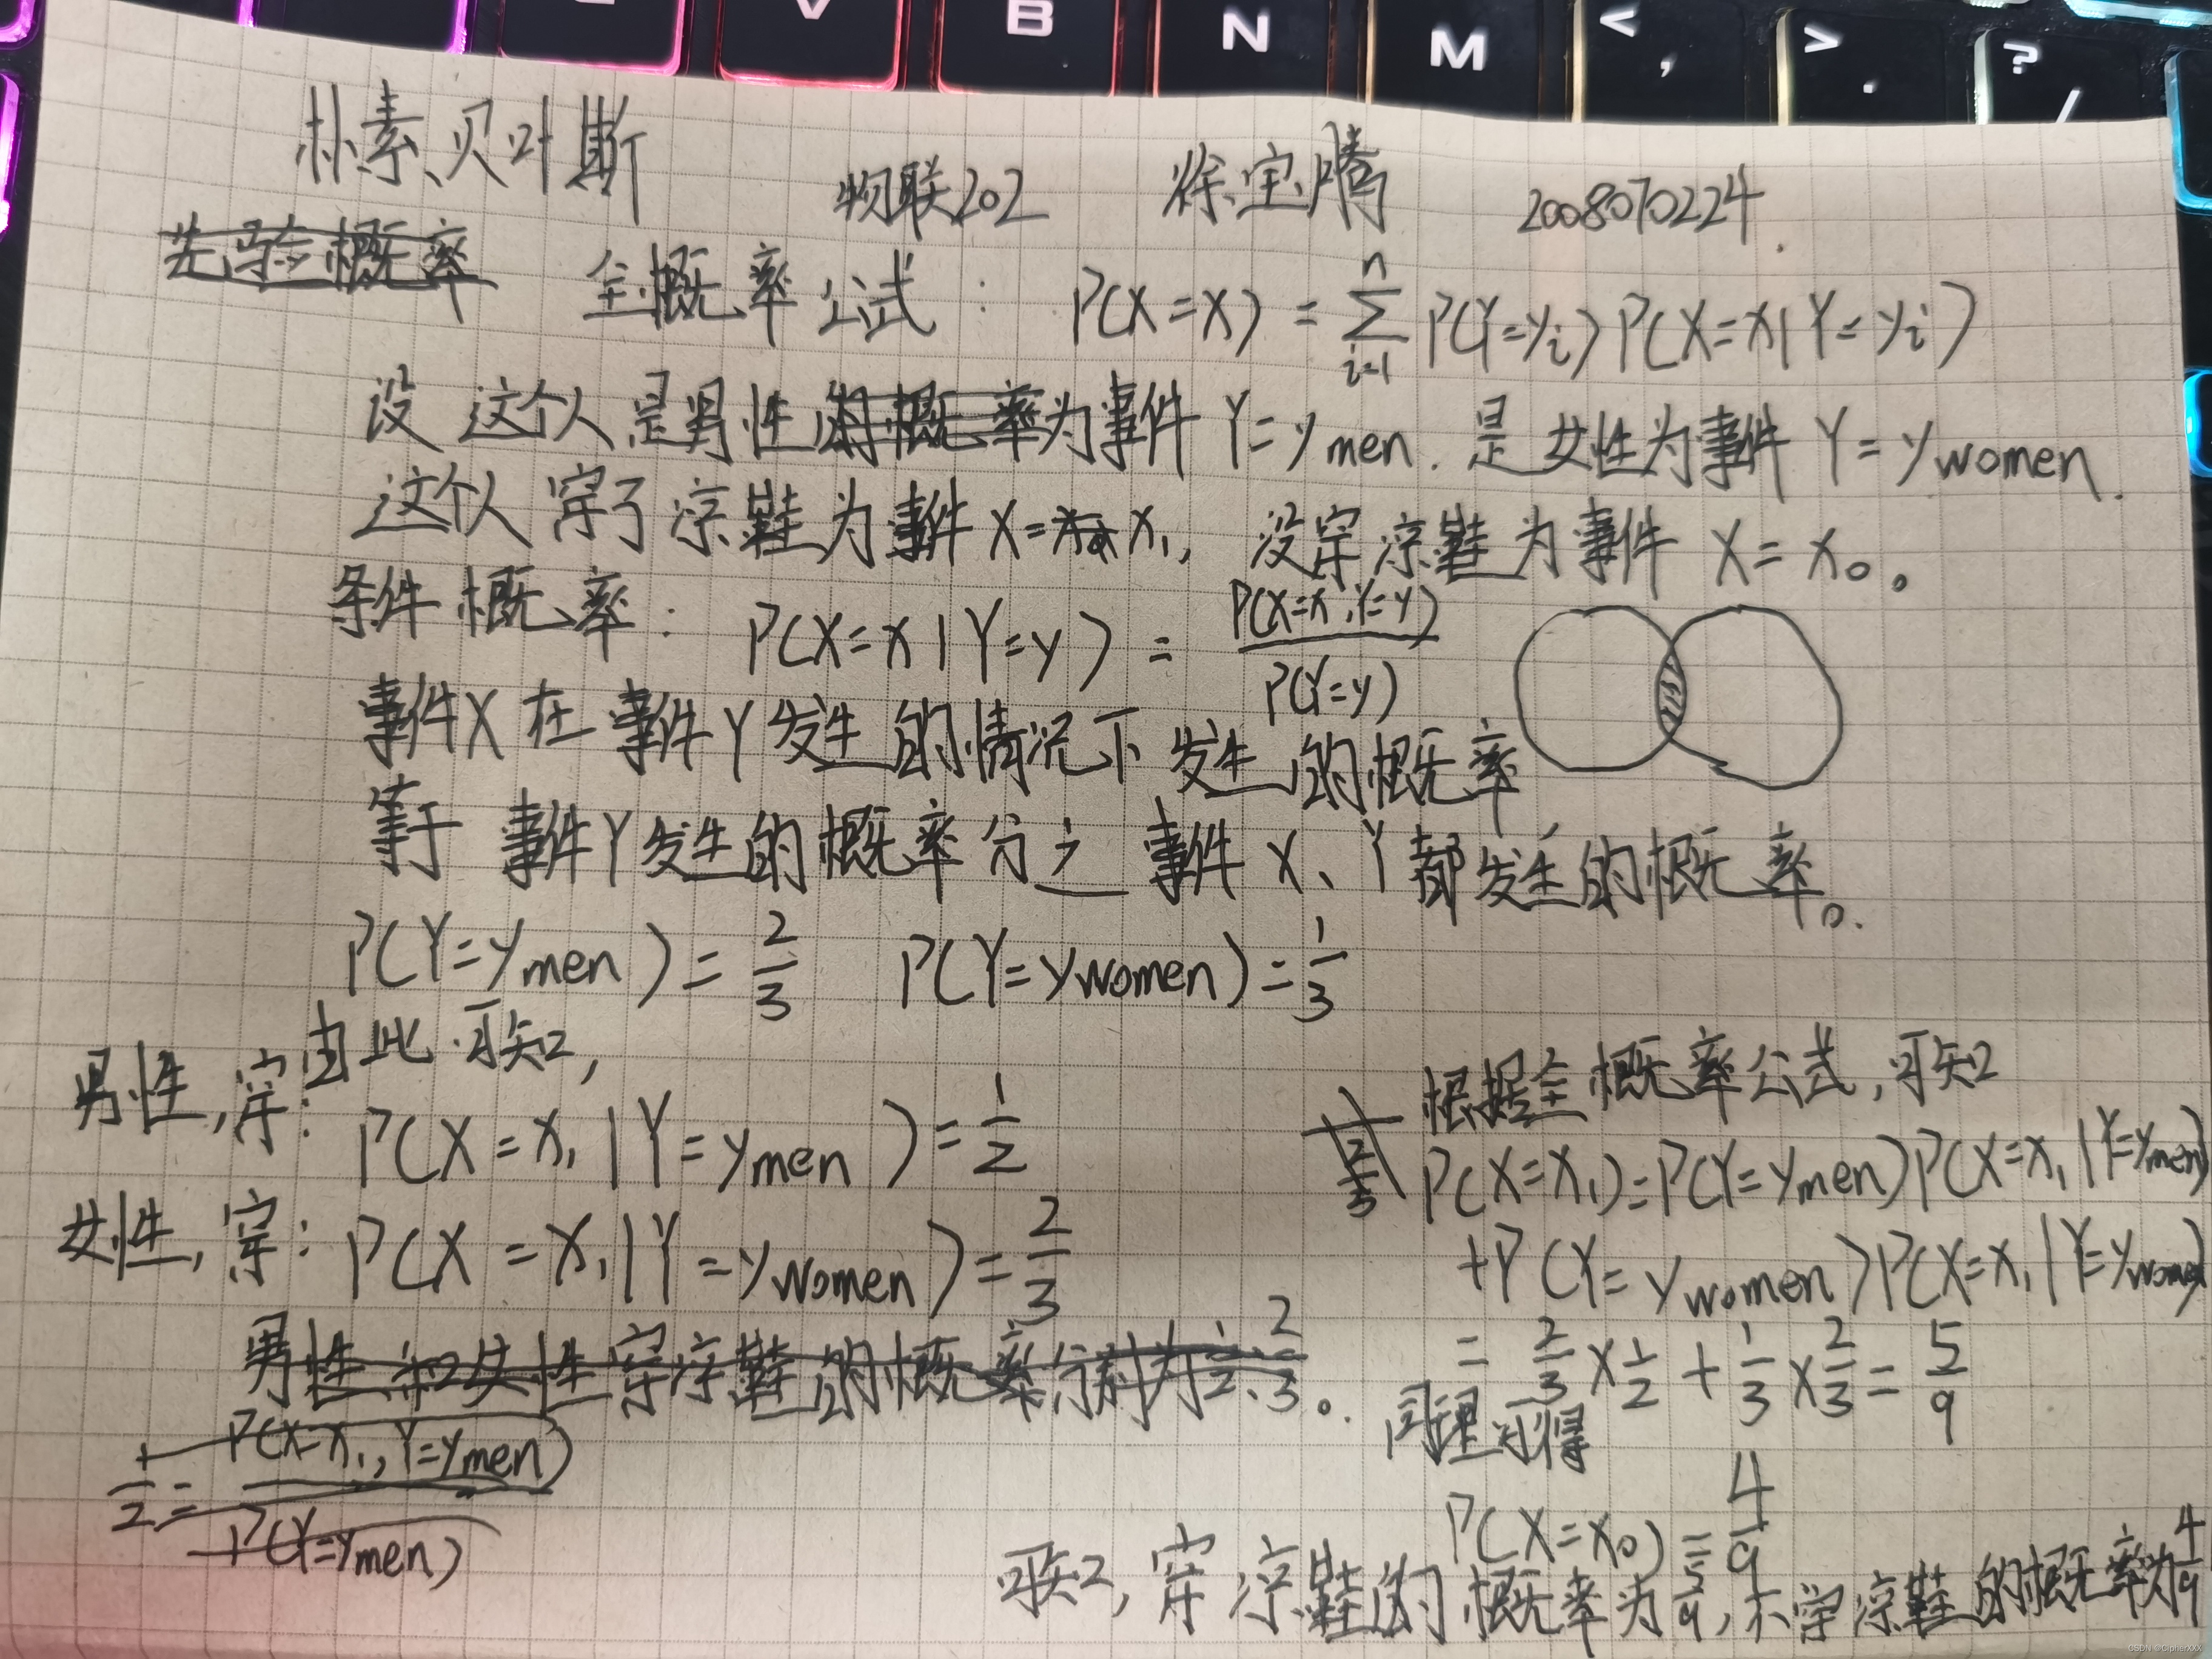 V B N M < , > . ? /
朴素贝叶斯 物联202 徐宝腾 2008070224
先验概率 全概率公式: P(X=x) = \sum_{i=1}^{n} P(Y=y_i) P(X=x|Y=y_i)
设 这个人是男性的概率为事件 Y=y_{men}. 是女性为事件 Y=y_{women}.
这个人穿了凉鞋为事件 X=x_1, 没穿凉鞋为事件 X=x_0。
条件概率: P(X=x|Y=y) = \frac{P(X=x,Y=y)}{P(Y=y)}
事件X在事件Y发生的情况下发生的概率,
等于 事件Y发生的概率分之事件X、Y都发生的概率。
P(Y=y_{men})=\frac{2}{3} P(Y=y_{women})=\frac{1}{3}
由此可知,
男性,穿: P(X=x_1|Y=y_{men})=\frac{1}{2}
女性,穿: P(X=x_1|Y=y_{women})=\frac{2}{3}
男性和女性穿凉鞋的概率分别为\frac{1}{2}、\frac{2}{3}。
\frac{1}{2}=\frac{P(X=x_1,Y=y_{men})}{P(Y=y_{men})}
根据全概率公式,可知
P(X=x_1)=P(Y=y_{men})P(X=x_1|Y=y_{men})
+P(Y=y_{women})P(X=x_1|Y=y_{women})
=\frac{2}{3}×\frac{1}{2}+\frac{1}{3}×\frac{2}{3}=\frac{5}{9}
同理可得
P(X=x_0)=\frac{4}{9}
可知,穿凉鞋的概率为\frac{5}{9},不穿凉鞋的概率为\frac{4}{9}
CSDN @CipherXXX